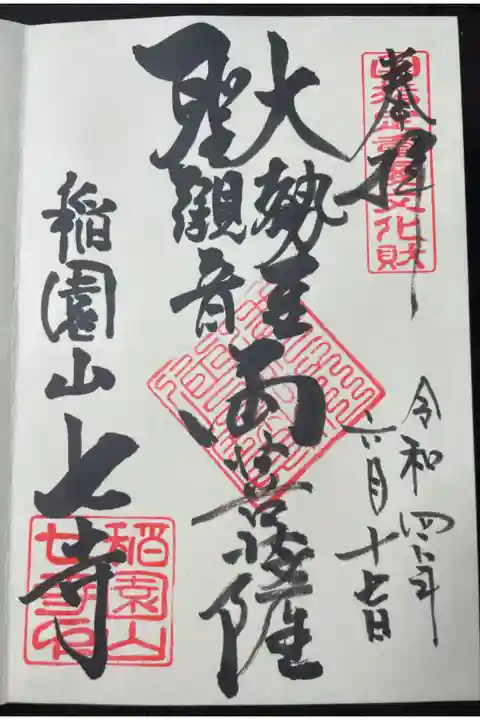 奉拝
令和四年
六月十七日
大勢至
聖観音
両菩薩
稲園山七寺
稲園山
七寺印